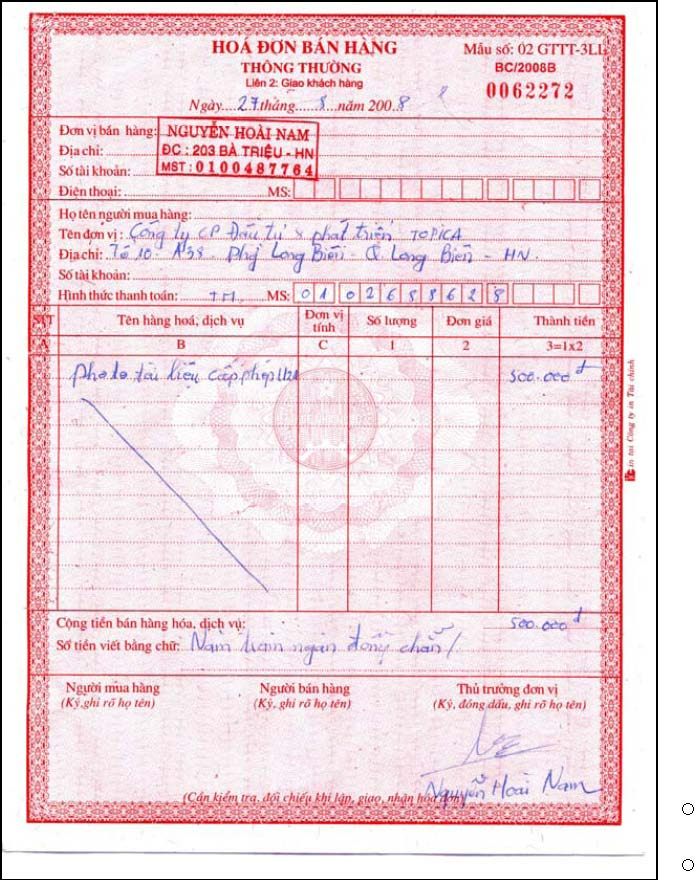 HOÁ ĐƠN BÁN HÀNG
THÔNG THƯỜNG
Liên 2: Giao khách hàng
Mẫu số: 02 GTTT-3LL
BC/2008B
0062272
Ngày....27tháng....8...năm 2008
Đơn vị bán hàng: NGUYỄN HOÀI NAM
Địa chỉ: ĐC : 203 BÀ TRIỆU - HN
Số tài khoản: MST : 0100487764
Điện thoại: MS:
Họ tên người mua hàng:
Tên đơn vị : Công ty CP Đầu tư & phát triển TOPICA
Địa chỉ: Tổ 10 - A38 Long Biên - Q Long Biên - HN.
Số tài khoản:
Hình thức thanh toán: TM MS: 01 02688628
STT Tên hàng hoá, dịch vụ Đơn vị tính Số lượng Đơn giá Thành tiền
A B C 1 2 3=1x2
photo tài liệu cấp phép 500.000đ
Cộng tiền bán hàng hóa, dịch vụ: 500.000đ
Số tiền viết bằng chữ: Năm trăm ngàn đồng chẵn/
Người mua hàng Người bán hàng Thủ trưởng đơn vị
(Ký,ghi rõ họ tên) (Ký, ghi rõ họ tên) (Ký, đóng dấu, ghi rõ họ tên)
Nguyễn Hoài Nam
(Cần kiểm tra, đối chiếu khi lập, giao, nhận hóa đơn)
in tại Công ty in Tài chính